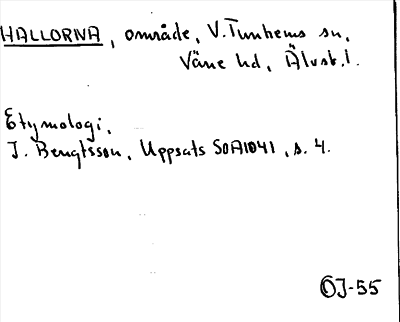 HALLORNA, område, V. Tunhems sn,
Väne hd, Älvsb. l.
Etymologi.
J. Bengtsson, Uppsats SOA1041, s. 4.
ÖJ-55